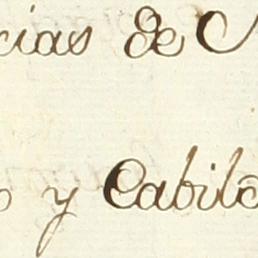 cias de
y Cabild